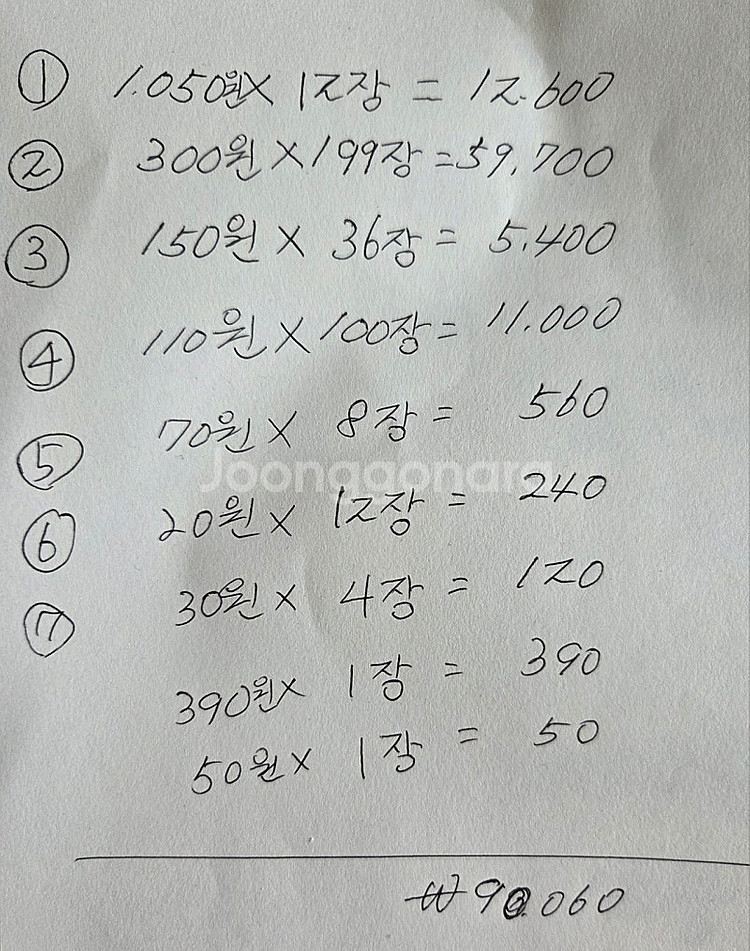 ① 1.050원 X 12장 = 12.600
② 300원 X 199장 = 59.700
③ 150원 X 36장 = 5.400
④ 110원 X 100장 = 11.000
⑤ 70원 X 8장 = 560
⑥ 20원 X 12장 = 240
⑦ 30원 X 4장 = 120
390원 X 1장 = 390
50원 X 1장 = 50
₩90.060
Joonggonara